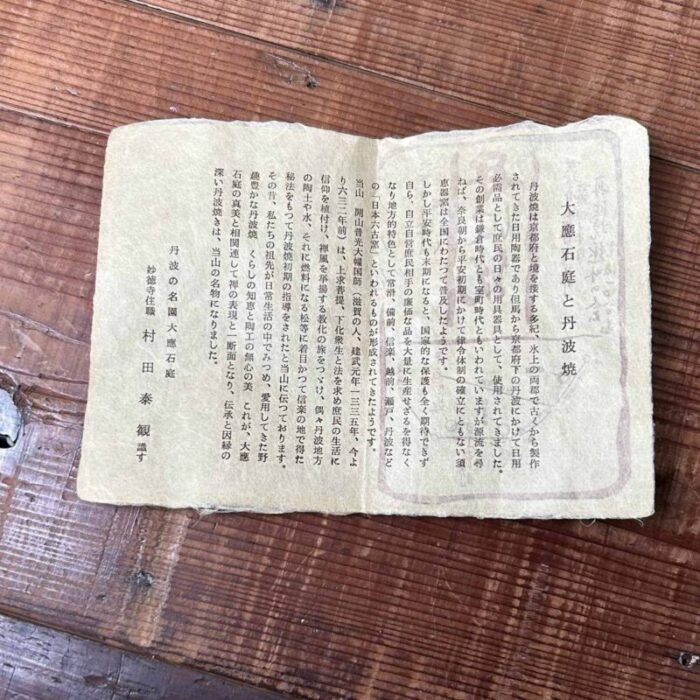 大應石庭と丹波燒
丹波焼は京都府と境を接する多紀、氷上の両郡で古くから製作
されてきた日用陶器であり但馬から京都府下の丹波にかけて日用
必需品として庶民の日々の用具器具として、使用されてきました。
その創業は鎌倉時代とも室町時代ともいわれていますが源流を尋
ねば、奈良朝から平安初期にかけて律令体制の確立にともない須
恵器窯は全国にわたつて普及したようです。
しかし平安時代も末期になると、国家的な保護も全く期待できず
自ら、自立自営庶民相手の廉価な品を大量に生産せざるを得なく
なり地方的特色として常滑、備前、信楽、越前、瀬戸、丹波など
の「日本六古窯」といわれるものが形成されてきたようです。
当山 開山普光大幢国師（滋賀の人、建武元年一三三五年、今よ
り六三二年前）は、上求菩提、下化衆生と法を求め庶民の生活に
信仰を植付け、禅風を挙揚する教化の旅をつゞけ、偶々丹波地方
の陶土や水、それに燃料になる松等に着目かつて信楽の地で得た
秘法をもつて丹波焼初期の指導をされたと当山に伝つております。
その昔、私たちの祖先が日常生活の中でみつめ、愛用してきた野
趣豊かな丹波焼 くらしの知恵と陶工の無心の美 これが、大應
石庭の真美と相関連して禅の表現と一断面となり、伝承と因縁の
深い丹波焼きは、当山の名物になりました。
丹波の名園大應石庭
妙徳寺住職 村田泰観識す